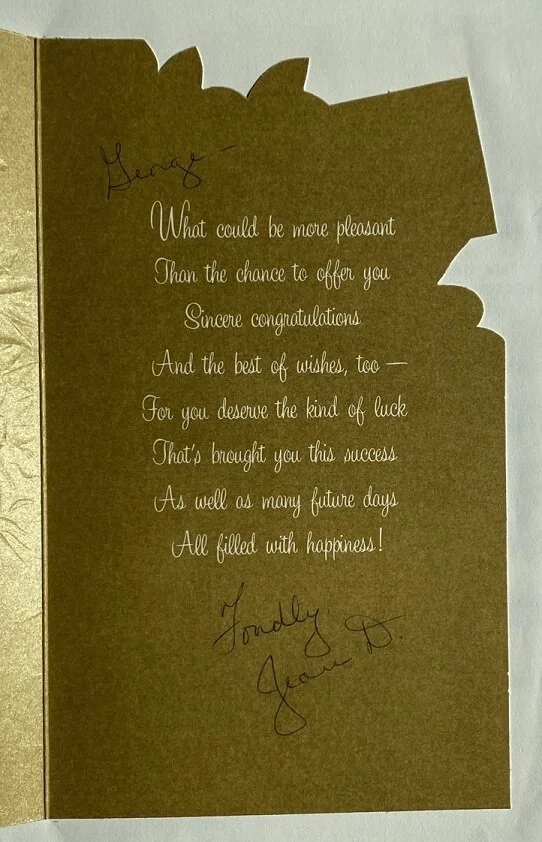 George -
What could be more pleasant
Than the chance to offer you
Sincere congratulations
And the best of wishes, too —
For you deserve the kind of luck
That's brought you this success
As well as many future days
All filled with happiness!
Fondly
Jean D.